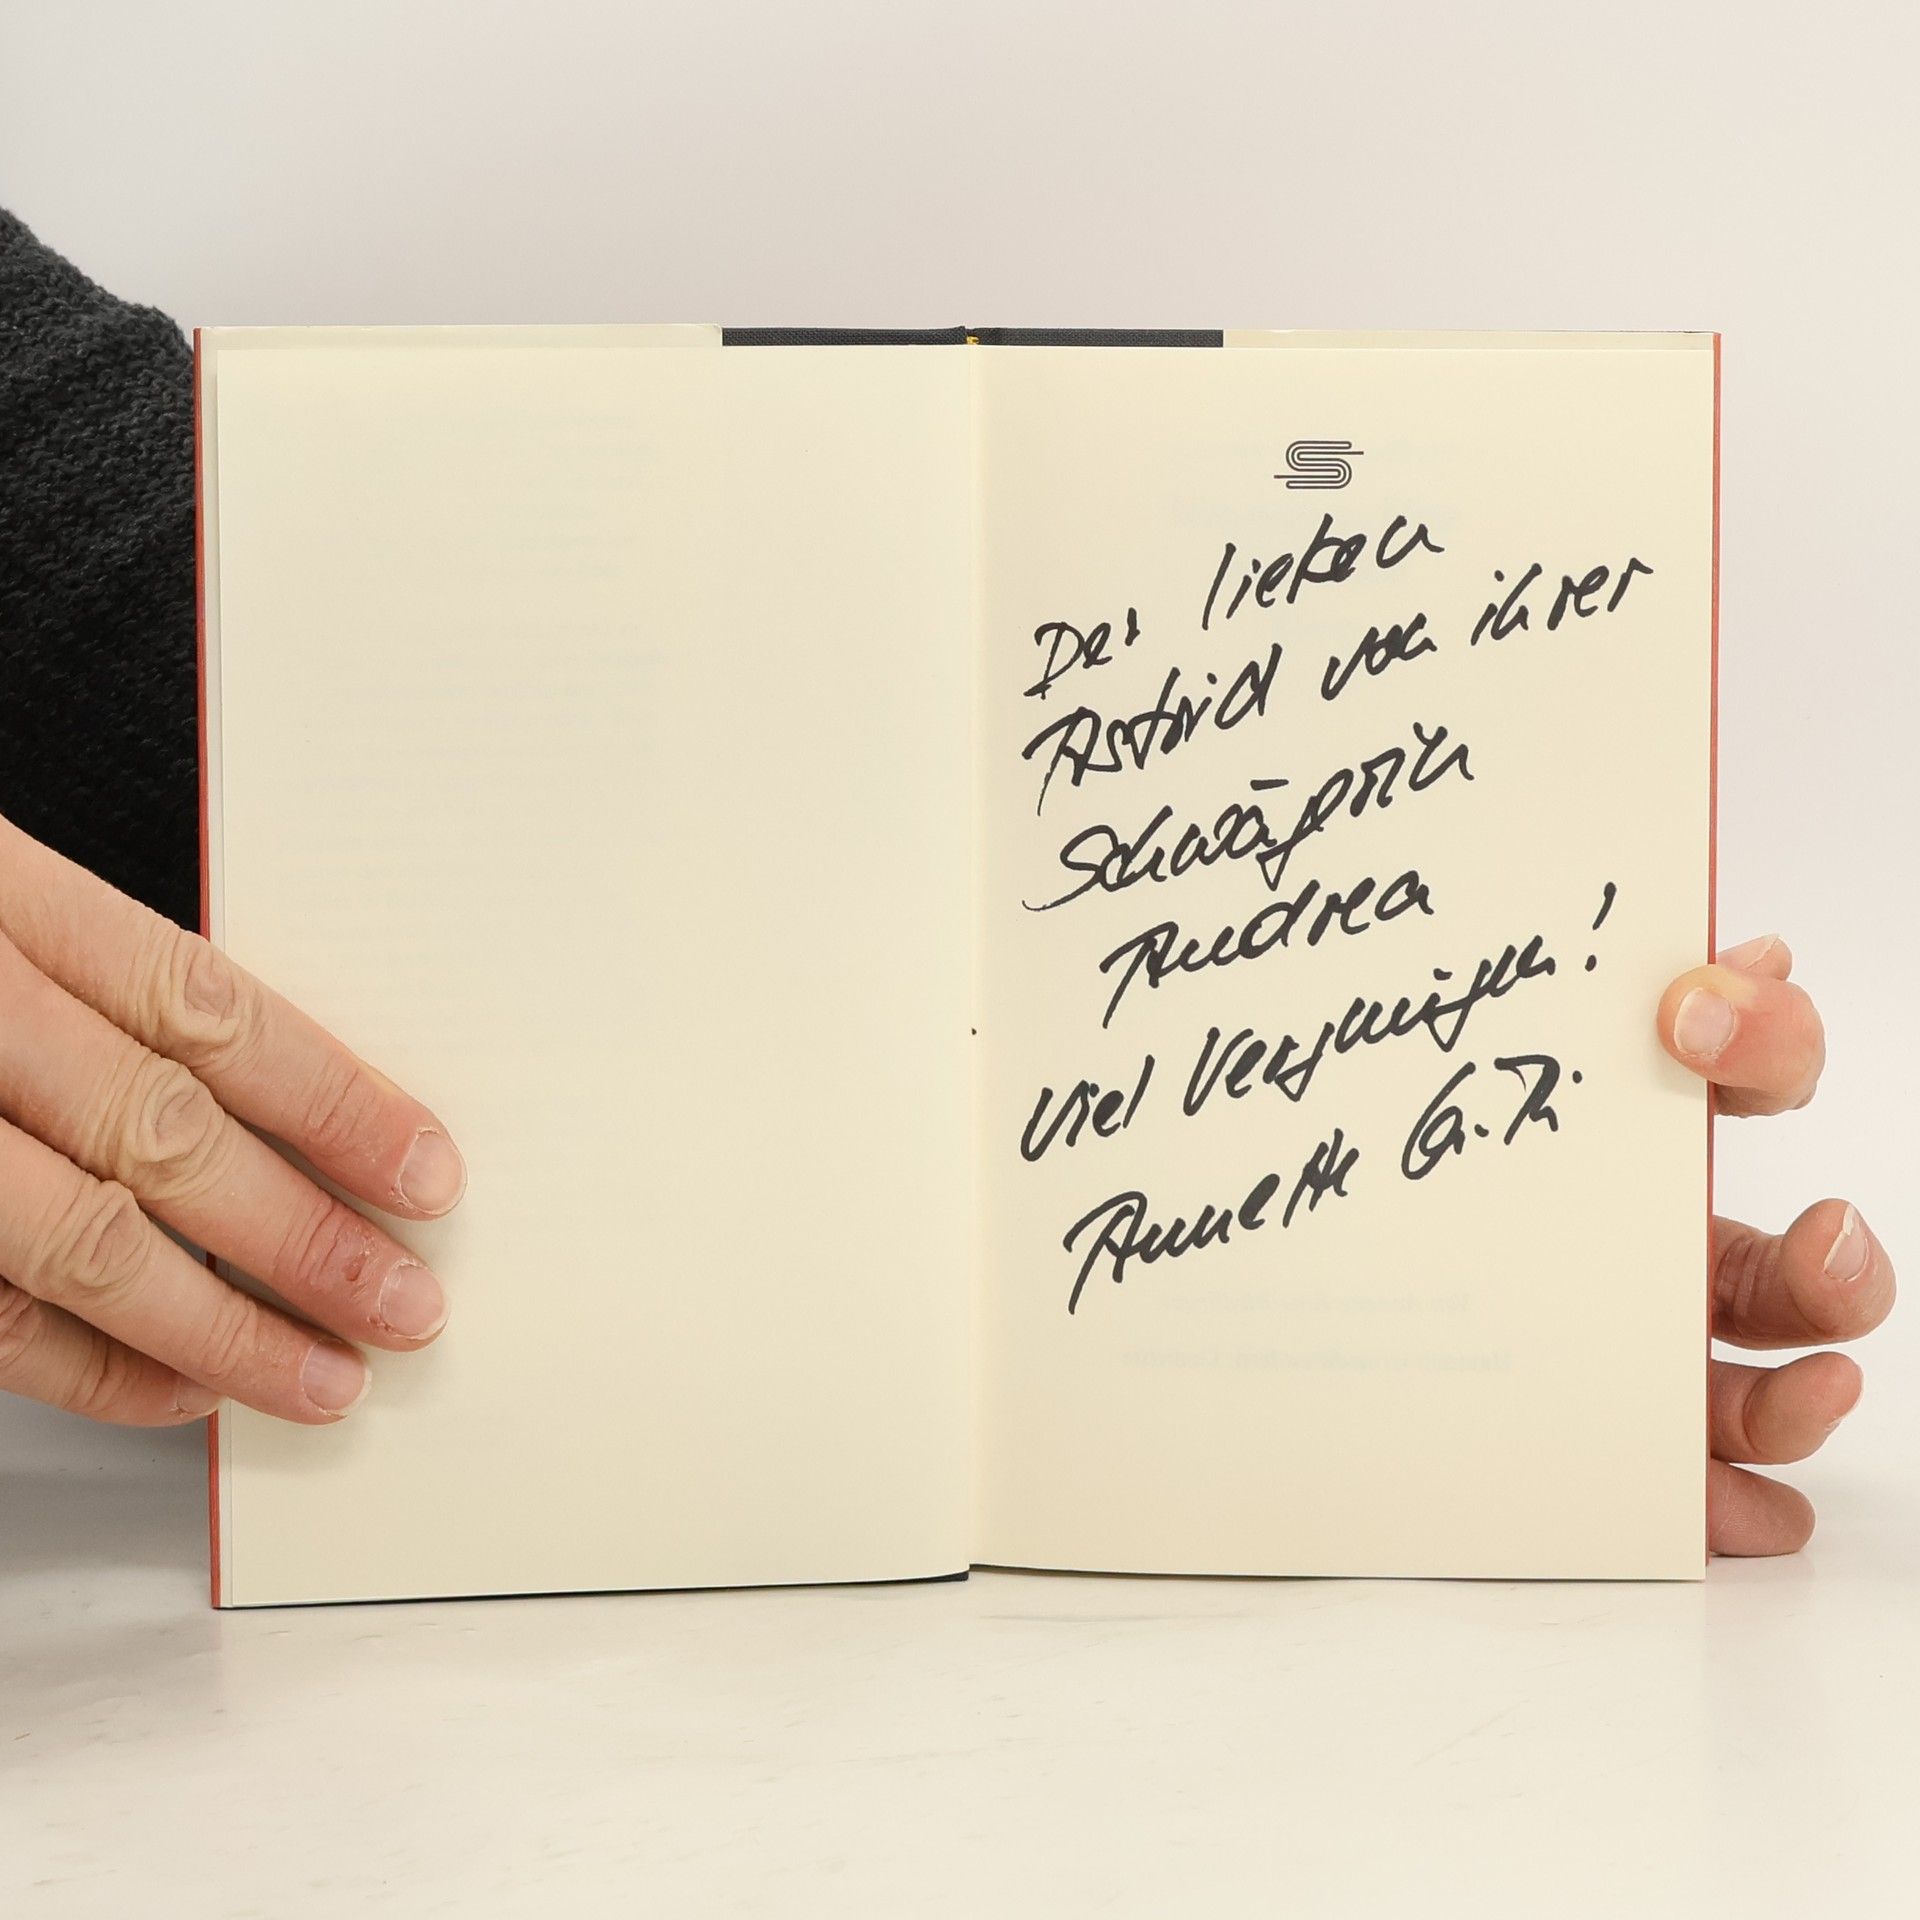 Der lieben
Astrid von ihrer
Schwägerin
Andrea
viel Vergnügen!
Annette